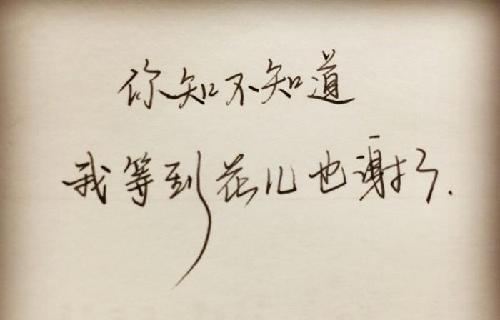 你知不知道
我等到花儿也谢了.